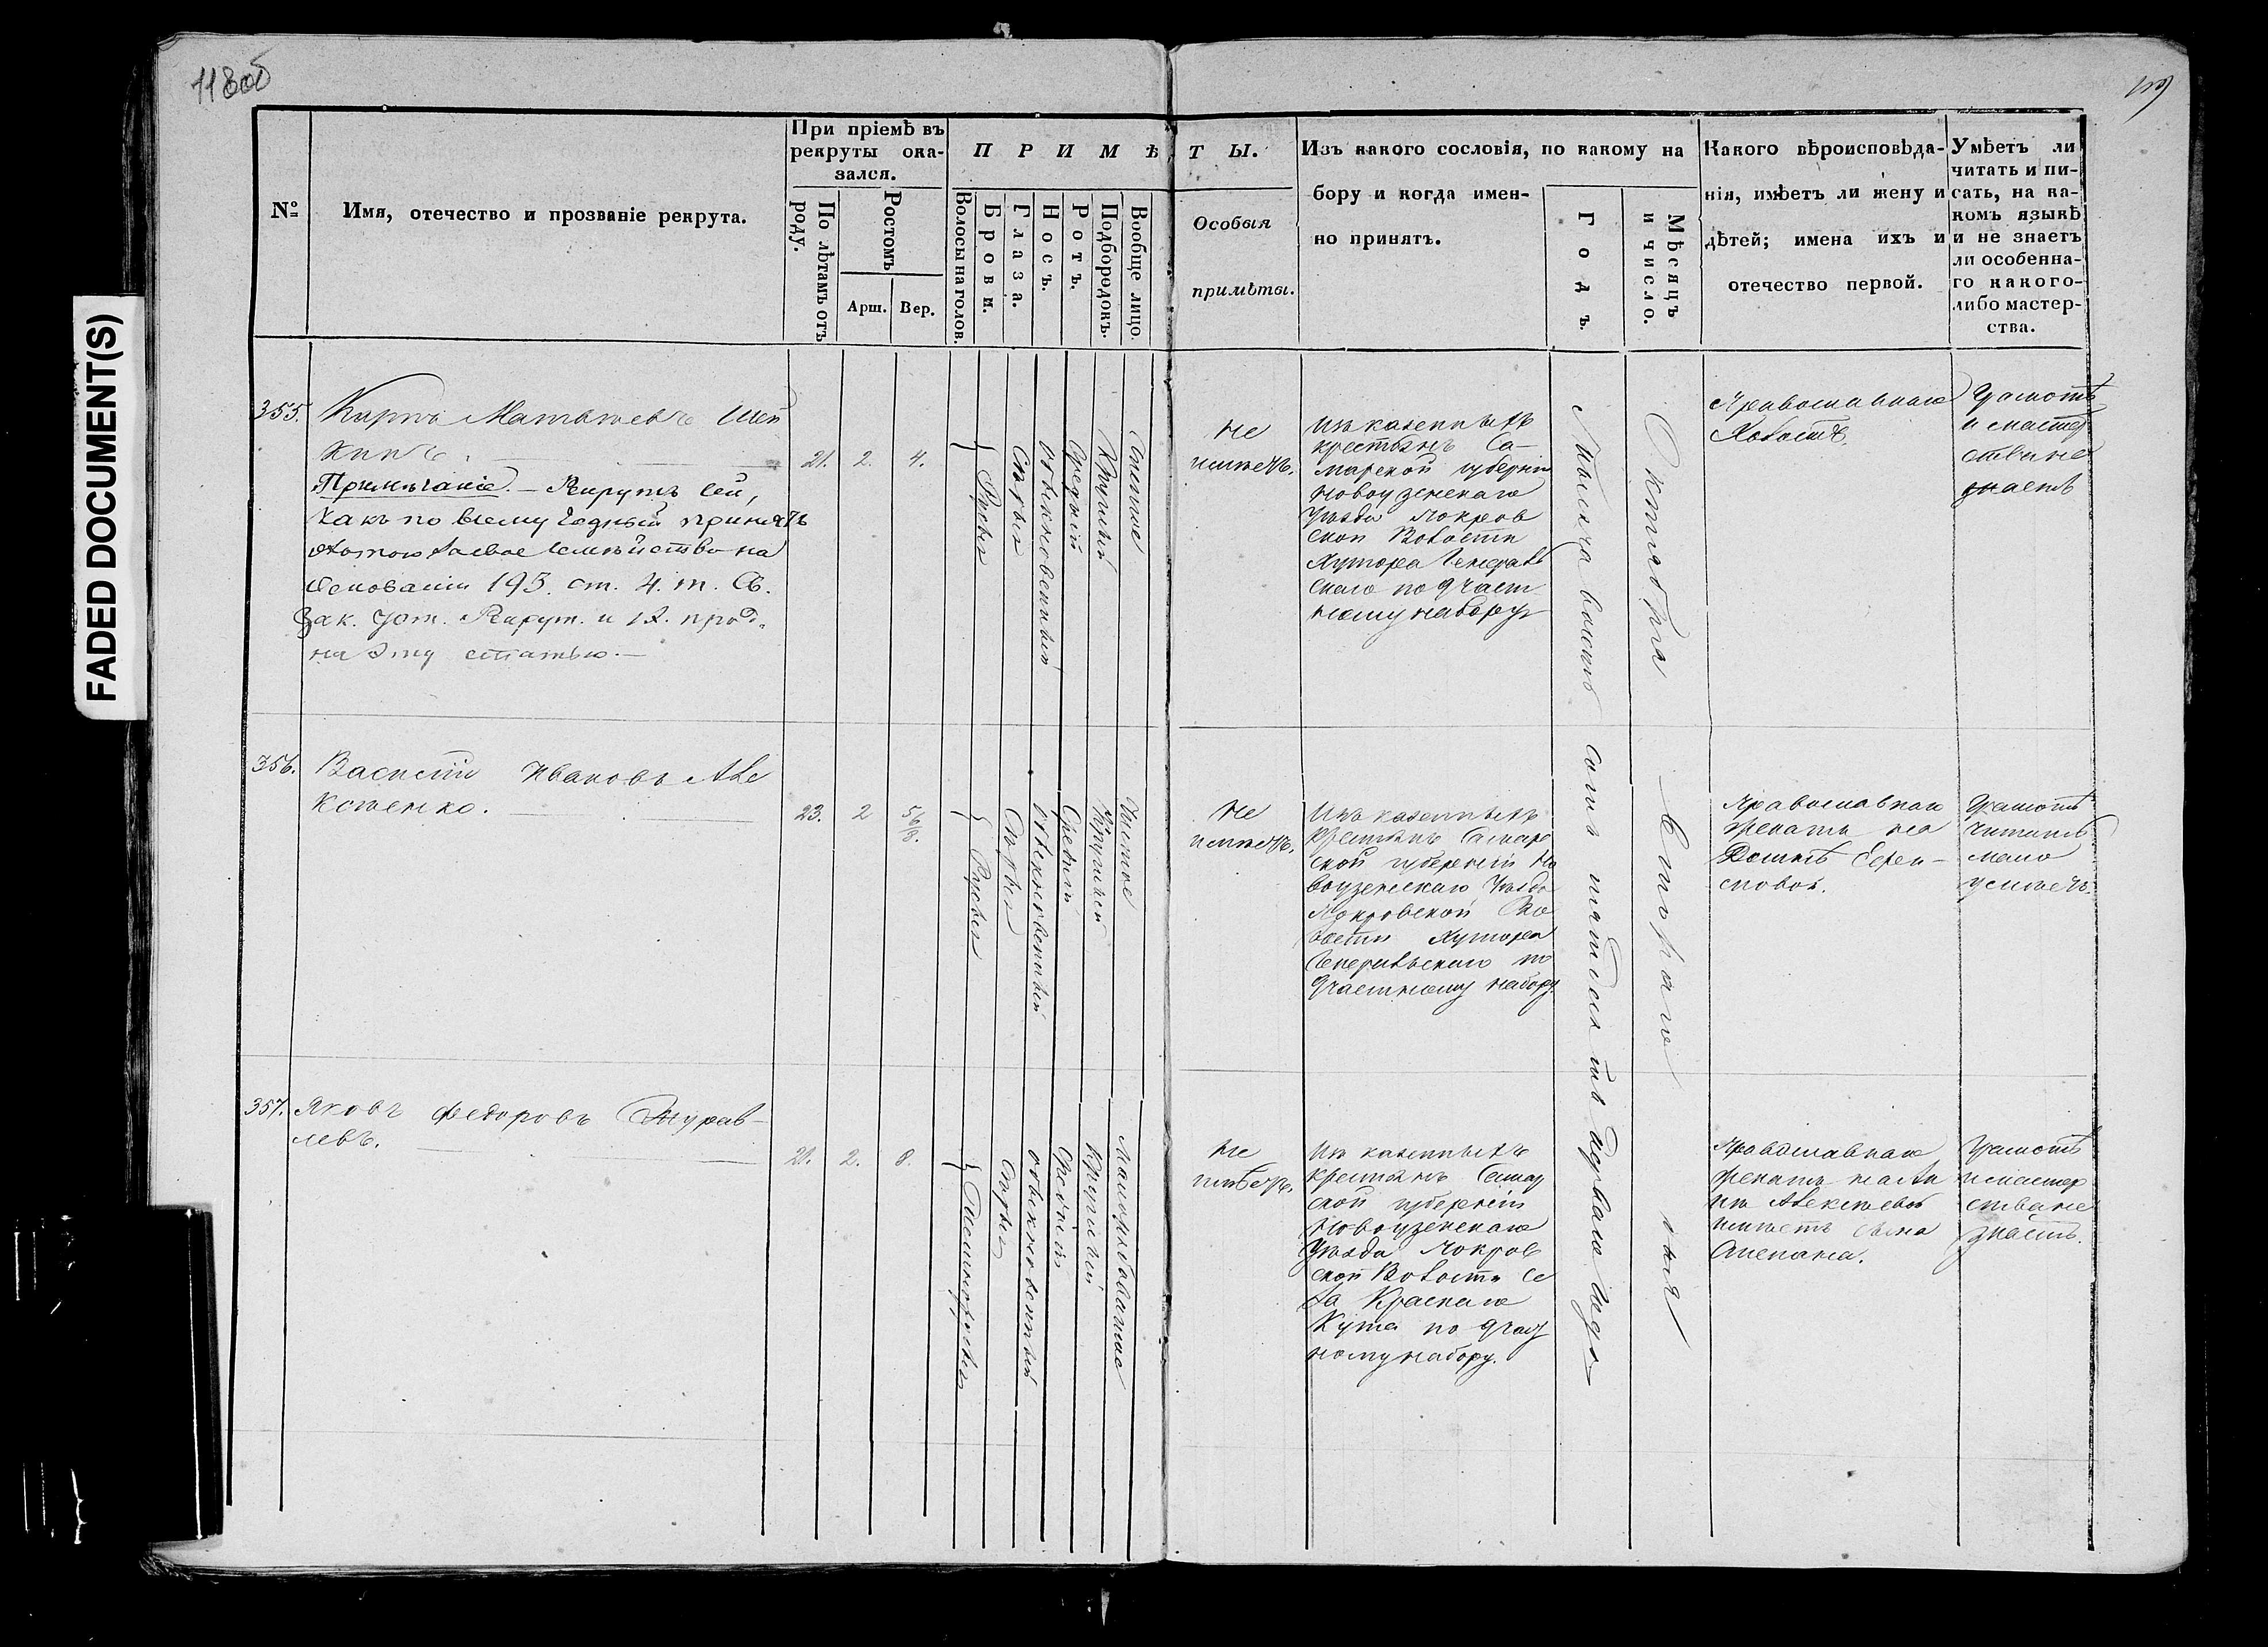 118об
119
FADED DOCUMENT(S)
№
Имя, отечество и прозваніе рекрута.
При пріемѣ въ
рекруты ока-
зался.
По лѣтамъ отъ
роду.
Ростомъ
Арш.
Вер.
ПРИМѢТЫ.
Волосы на голов.
Брови.
Глаза.
Носъ.
Ротъ.
Подбородокъ.
Вообще лицо.
Особыя
примѣты.
Изъ какого сословія, по какому на
бору и когда имен-
но принятъ.
Годъ.
Мѣсяцъ
и число.
Какого вѣроисповѣда-
нія, имѣетъ ли жену и
дѣтей; имена ихъ и
отечество первой.
Умѣетъ ли
читать и пи-
сать, на ка-
комъ языкѣ
и не знаетъ
ли особенна-
го какого-
либо мастер-
ства.
355.
Карпъ Матвѣевъ
Примѣчаніе. — Рекрутъ сей,
какъ по всему годный принятъ
охотою за свое семѣйство на
основаніи 195. ст. 4. т. Св.
Зак. Уст. Рекрут. и прод.
на эту статью. —
21.
2.
4.
Русые
Сѣрые
обыкновенный
Средній
Круглый
Чистое
Не
имѣетъ.
Изъ казенныхъ
крестьянъ Са-
марской губерніи
Новоузенскаго
Уѣзда Покров
ской Волости
Хутора Генераль
скаго по участ
ковому набору
Тысяча восемь сотъ пятьдесятъ перваго года
Октября втораго дня
Православнаго
Холостъ.
Грамотѣ
и мастер
ства не
знаетъ
356.
Василій Ивановъ Але
ксѣенко.
23.
2
5 6/8.
Русые
Сѣрые
обыкновенный
Средній
Круглый
Чистое
Не
имѣетъ.
Изъ казенныхъ
крестьянъ Самар
ской губерніи Но
воузенскаго Уѣзда
Покровской Во
лости Хутора
Генеральскаго по
Участковому набору.
Православнаго
женатъ на
Грамотѣ
читать
мало
умѣетъ.
357.
Яковъ Федоровъ Журав-
левъ.
21.
2.
8.
Сѣрые
обыкновенный
Средній
Круглый
Не
имѣетъ.
Изъ казенныхъ
крестьянъ Самар
ской губерніи
Новоузенскаго
Уѣзда Покров
ской Волости се
ла Краснаго
Кута по участ
ному набору.
Православнаго
женатъ на Ан
нѣ Алексѣевой
имѣетъ сына
Степана.
Грамотѣ
и мастер
ства не
знаетъ.